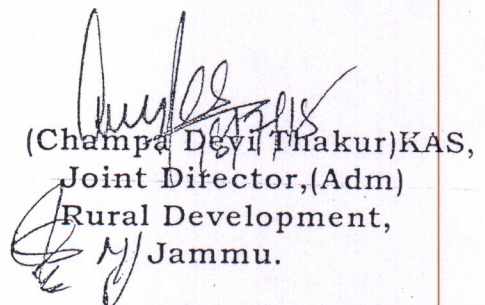 (Champa Devi Thakur)KAS,
Joint Director,(Adm)
Rural Development,
Jammu.